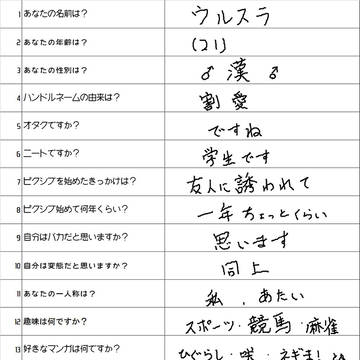 1 あなたの名前は? ウルスラ
2 あなたの年齢は? (21)
3 あなたの性別は? ♂ 漢 ♂
4 ハンドルネームの由来は? 割愛
5 オタクですか? ですね
6 ニートですか? 学生です
7 ピクシブを始めたきっかけは? 友人に誘われて
8 ピクシブ始めて何年くらい? 一年ちょっとくらい
9 自分はバカだと思いますか? 思います
10 自分は変態だと思いますか? 同上
11 あなたの一人称は? 私、あたい
12 趣味は何ですか? スポーツ・競馬・麻雀
13 好きなマンガは何ですか? ひぐらし・咲・ネギま!